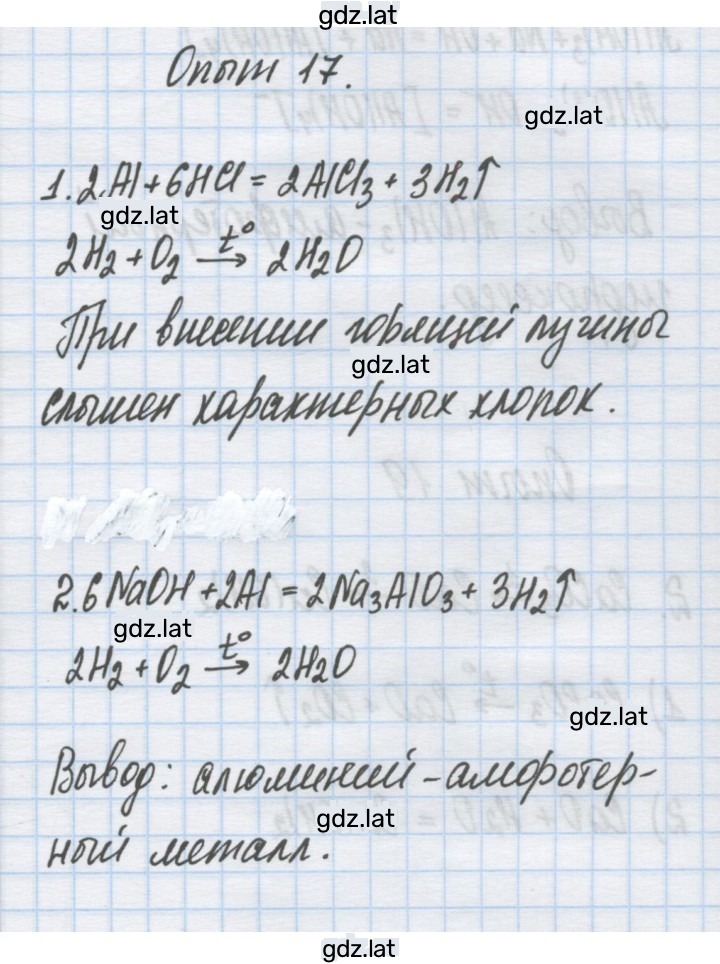 gdz.lat
Опыт 17.
gdz.lat
1. 2Al + 6HCl = 2AlCl₃ + 3H₂↑
gdz.lat
2H₂ + O₂ →t° 2H₂O
При внесении горящей лучины
gdz.lat
слышен характерных хлопок.
2. 6NaOH + 2Al = 2Na₃AlO₃ + 3H₂↑
gdz.lat
2H₂ + O₂ →t° 2H₂O
gdz.lat
Вывод: алюминий - амфотер-
gdz.lat
ный металл.
gdz.lat